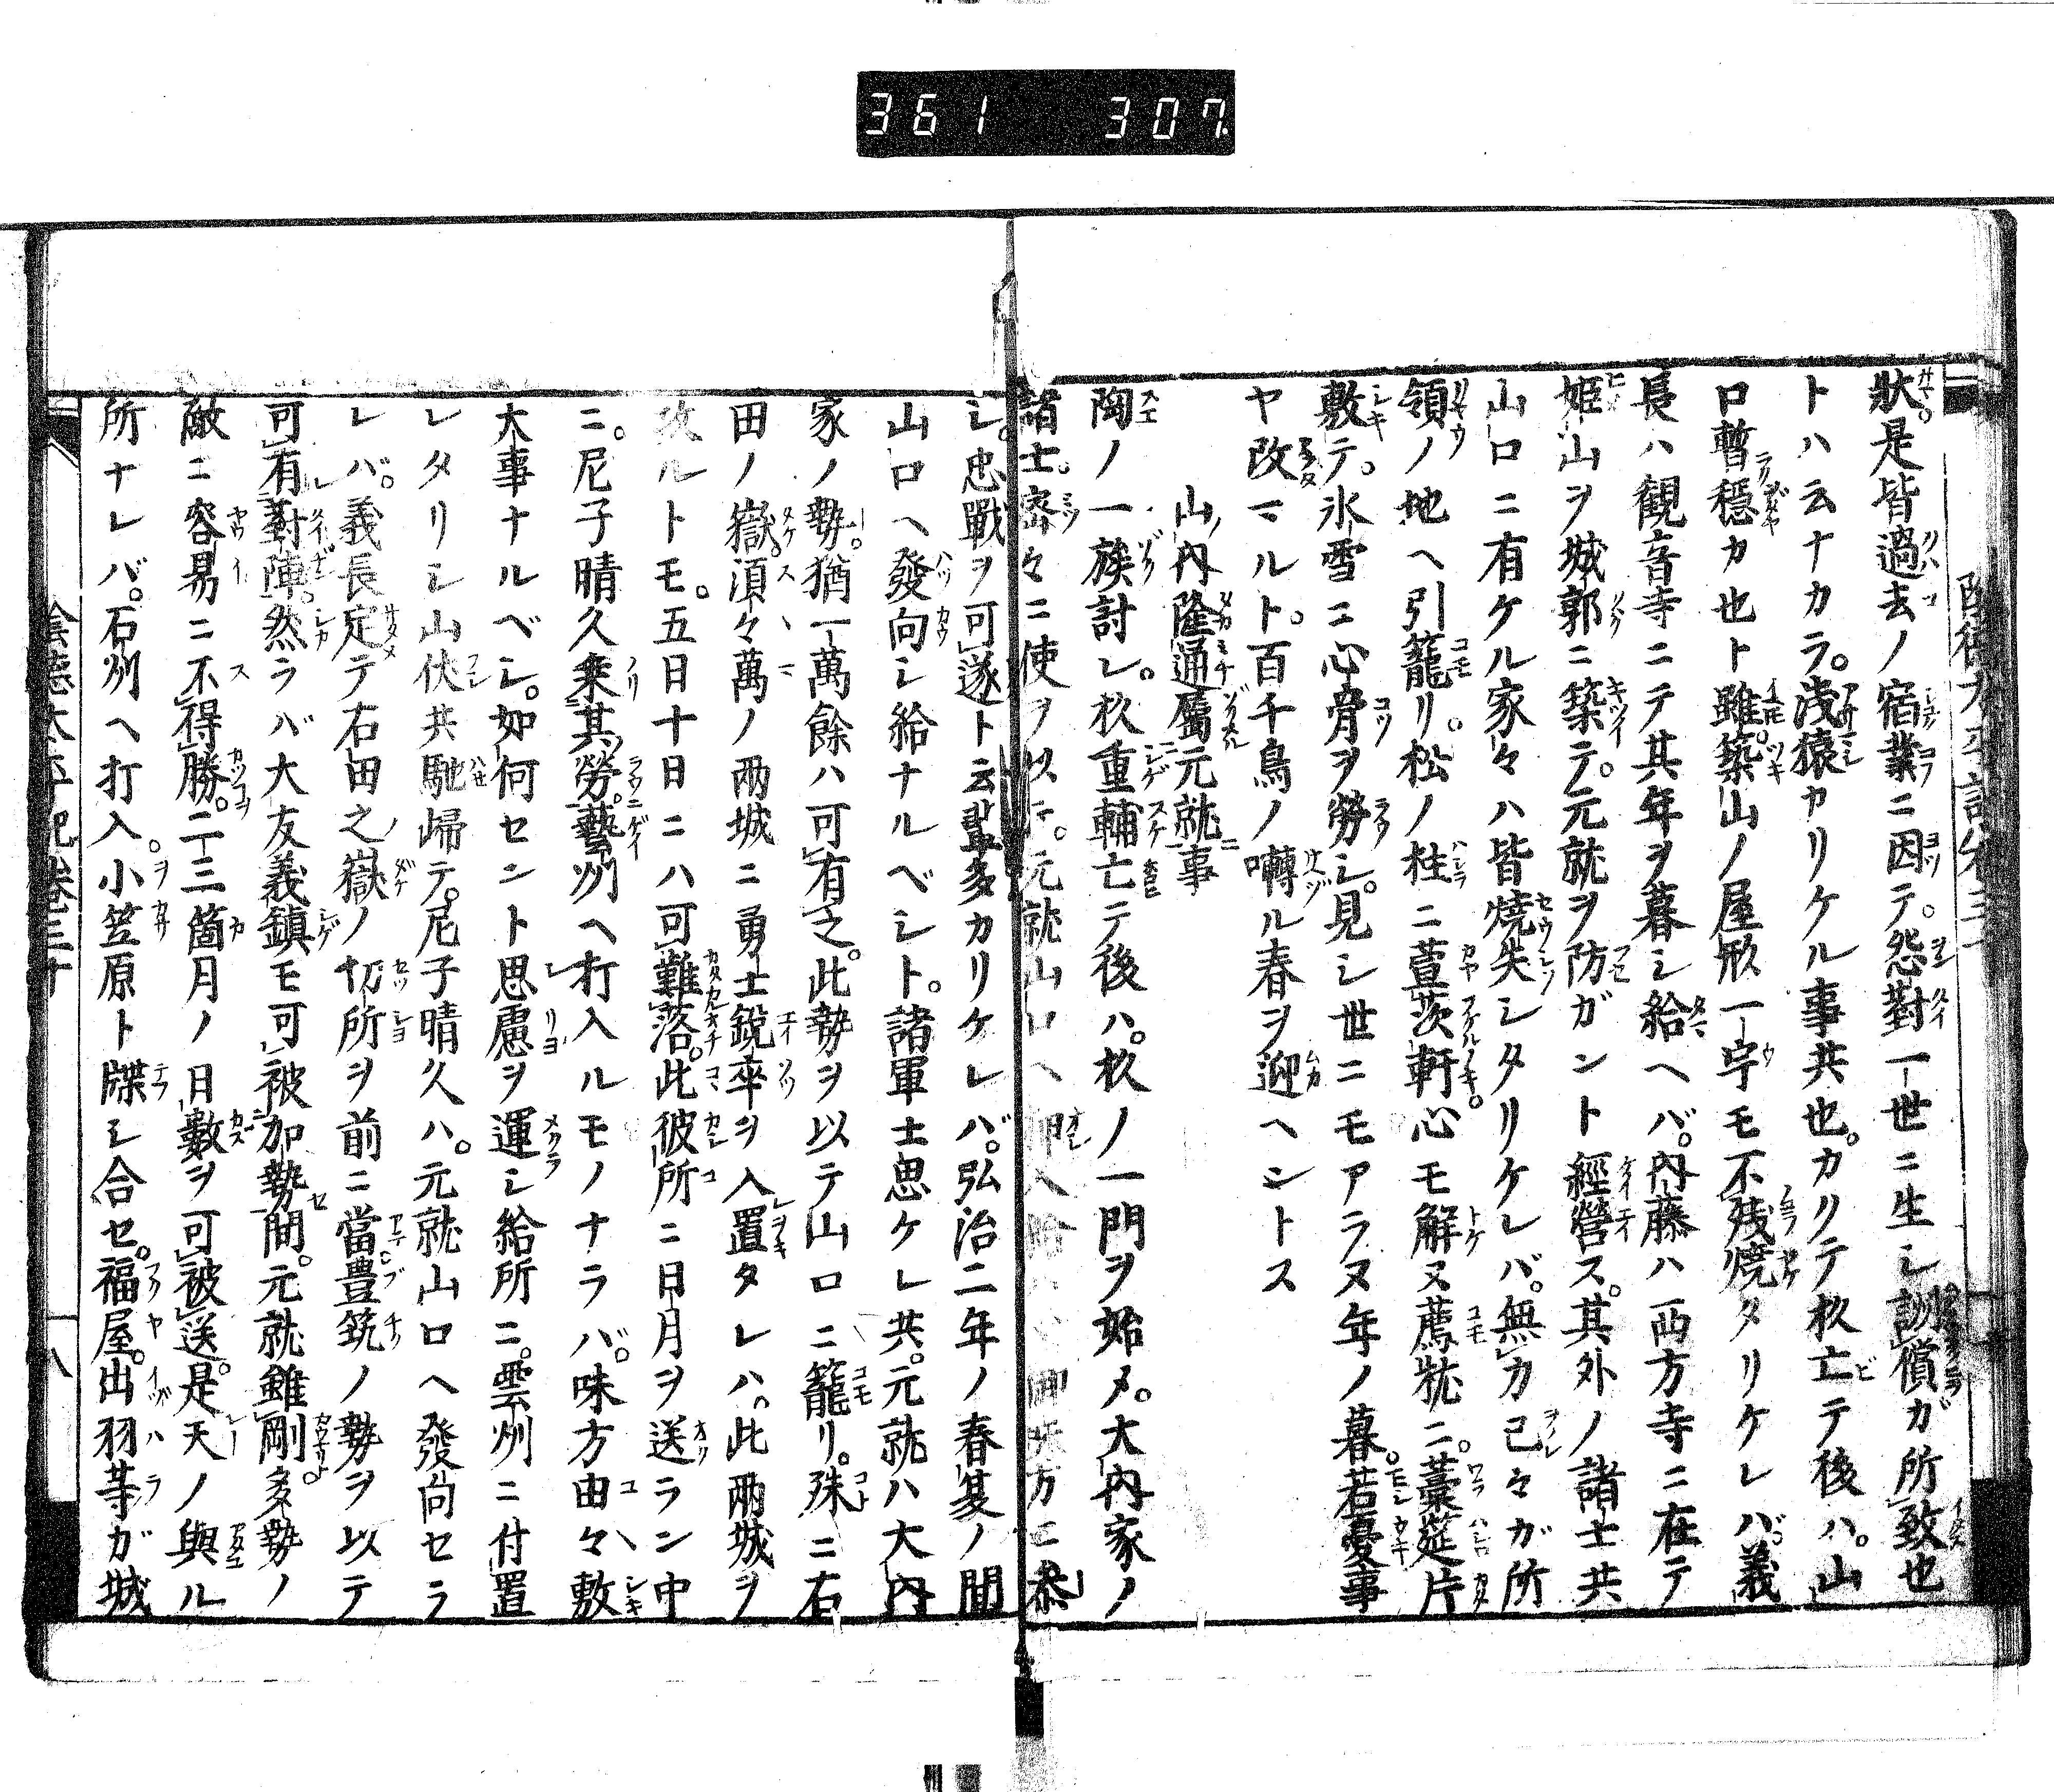 361 307
狀。是皆過去ノ宿業ニ因テ。怨對一世ニ生レ訓償ガ所致也
トハ云ナカラ。浅猿ヤリケル事共也。カリテ杦亡テ後ハ。山
口暫穏カ也ト雖。築山ノ屋形一宇モ不残焼タリケレバ義
長ハ観音寺ニテ其年ヲ暮シ給ヘバ。内藤ハ西方寺ニ在テ
姫山ヲ城郭ニ築テ。元就ヲ防ガント經營ス。其外ノ諸士共
山口ニ有ケル家々ハ皆燒失シタリケレバ。無力己々ガ所
領ノ地ヘ引籠リ。松ノ柱ニ萱茨軒。心モ解ヌ薦枕ニ。藁莚片
敷テ。氷雪ニ心骨ヲ勞シ。見シ世ニモアラヌ年ノ暮。若憂事
ヤ改マルト。百千鳥ノ囀ル春ヲ迎ヘントス
山内隆通屬元就事
陶ノ一族討レ。杦重輔亡テ後ハ。杦ノ一門ヲ始メ。大内家ノ
諸士。密々ニ使ヲ以テ。元就山口ヘ押入給 御味方ニ参
シ。忠戰ヲ可遂ト云輩多カリケレバ。弘治二年ノ春夏ノ間
山口ヘ發向シ給ナルベシト。諸軍士思ケレ共。元就ハ大内
家ノ勢。猶一萬餘ハ可有之。此勢ヲ以テ山口ニ籠リ。殊ニ右
田ノ嶽。須々萬ノ兩城ニ勇士鋭卒ヲ入置タレハ。此兩城ヲ
攻ルトモ。五日十日ニハ可難落。此彼所ニ日月ヲ送ラン中
ニ。尼子晴久乗其勞。藝州ヘ打入ルモノナラバ。味方由々敷
大事ナルベシ。如何セント思慮ヲ運シ給所ニ。雲州ニ付置
レタリシ山伏共馳歸テ。尼子晴久ハ。元就山口ヘ發向セラ
レバ。義長定テ右田之嶽ノ切所ヲ前ニ當豊筑ノ勢ヲ以テ
可有對陣。然ラバ大友義鎮モ可被加勢間。元就雖剛。多勢ノ
敵ニ容易ニ不得勝。二三箇月ノ日數ヲ可被送。是天ノ與ル
所ナレバ。石州ヘ打入。小笠原ト牒シ合セ。福屋。出羽等ガ城
陰徳太平記巻三十 八